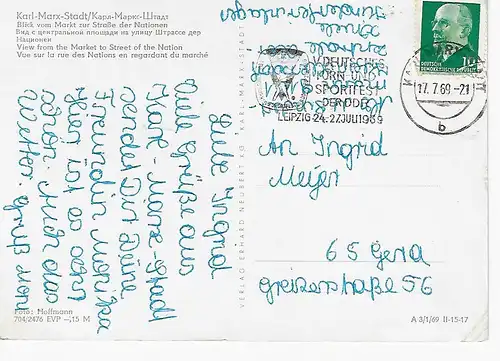 Karl-Marx-Stadt/Карл-Маркс-Штадт
Blick vom Markt zur Straße der Nationen
Вид с центральной площади на улицу Штрассе дер
Национен
View from the Market to Street of the Nation
Vue sur la rue des Nations en regardant du marché
Liebe Ingrid
Viele Grüße aus
Karl-Marx-Stadt
sendet Dir Deine
Freundin Monika
Hier ist es sehr
schön. Auch das
Wetter. Gruß Moni
V. DEUTSCHES
TURN-UND
SPORTFEST
DER DDR
LEIPZIG 24.-27. JULI 1969
DEUTSCHE
DEMOKRATISCHE REPUBLIK
10
17. 7. 69 -21
b
An Ingrid
Meyer
65 Gera
Greizerstraße 56
VERLAG ERHARD NEUBERT KG KARL-MARX-STADT
Foto: Hoffmann
704/2476 EVP -,15 M
A 3/1/69 II-15-17